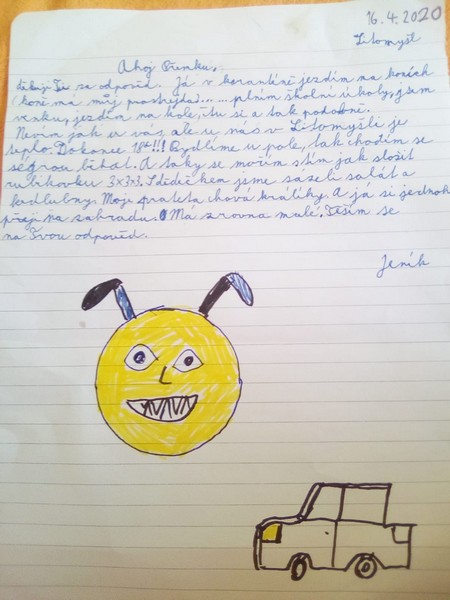 16.4.2020
Litomyšl
Ahoj Čenku,
děkuji Ti za odpověd. Já v karanténě jezdím na koních
(koně má můj prastrejda)...... plním školní úkoly, jsem
venku, jezdím na kole, hraju si a tak podobně.
Nevím jak u vás, ale u nás v Litomyšli je
teplo. Dokonce 18°!!! Bydlíme u pole, tak chodím se
ségrou běhat. A taky se možím s tím jak složit
rubikovku 3x3x3. S dědečkem jsme sázeli salát a
kedlubny. Moje prateta chová králíky. A já si jednoho
na zahradu. Má zrovna malé. Těším se
na Tvou odpověd.
Jeník